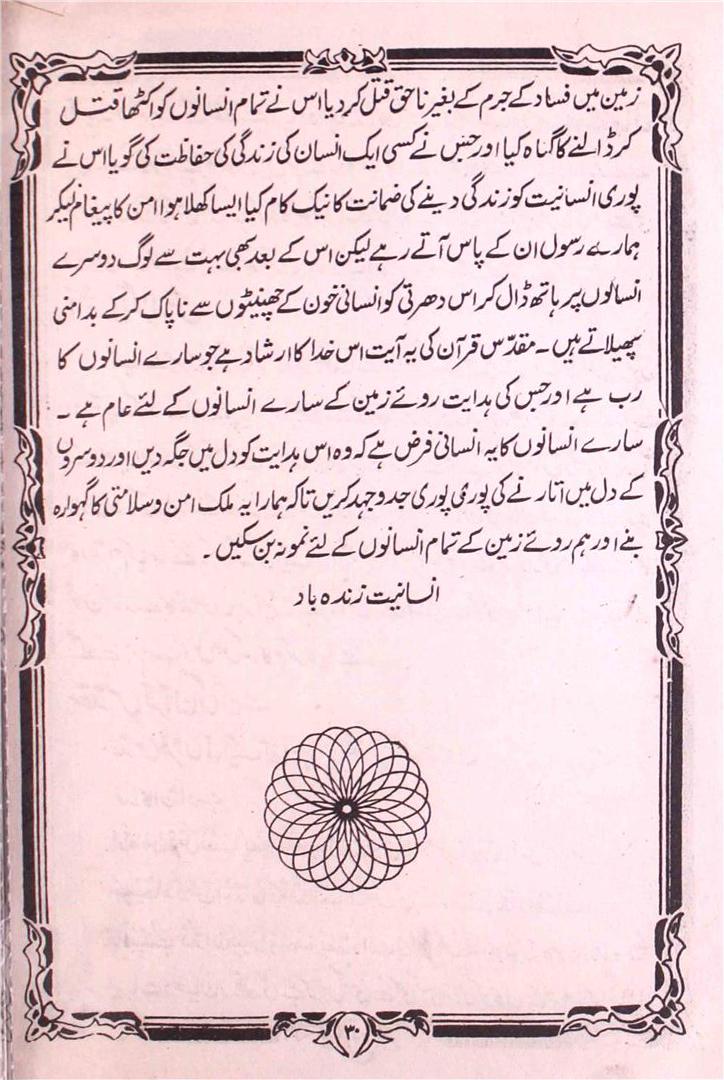 زمین میں فساد کے جرم کے بغیر ناحق قتل کر دیا اس نے تمام انسانوں کو اکٹھا قتل
کر ڈالنے کا گناہ کیا اور جس نے کسی ایک انسان کی زندگی کی حفاظت کی گویا اس نے
پوری انسانیت کو زندگی دینے کی ضمانت کا نیک کام کیا ایسا کھلا ہوا امن کا پیغام لیکر
ہمارے رسول ان کے پاس آتے رہے لیکن اس کے بعد بھی بہت سے لوگ دوسرے
انسانوں پر ہاتھ ڈال کر اس دھرتی کو انسانی خون کے چھینٹوں سے ناپاک کر کے بد امنی
پھیلاتے ہیں ۔ مقدّس قرآن کی یہ آیت اس خدا کا ارشاد ہے جو سارے انسانوں کا
رب ہے اور جس کی ہدایت روئے زمین کے سارے انسانوں کے لئے عام ہے ۔
سارے انسانوں کا یہ انسانی فرض ہے کہ وہ اس ہدایت کو دل میں جگہ دیں اور دوسروں
کے دل میں اتارنے کی پوری پوری جدوجہد کریں تاکہ ہمارا یہ ملک امن و سلامتی کا گہوارہ
بنے اور ہم روئے زمین کے تمام انسانوں کے لئے نمونہ بن سکیں ۔
انسانیت زندہ باد
۳۰